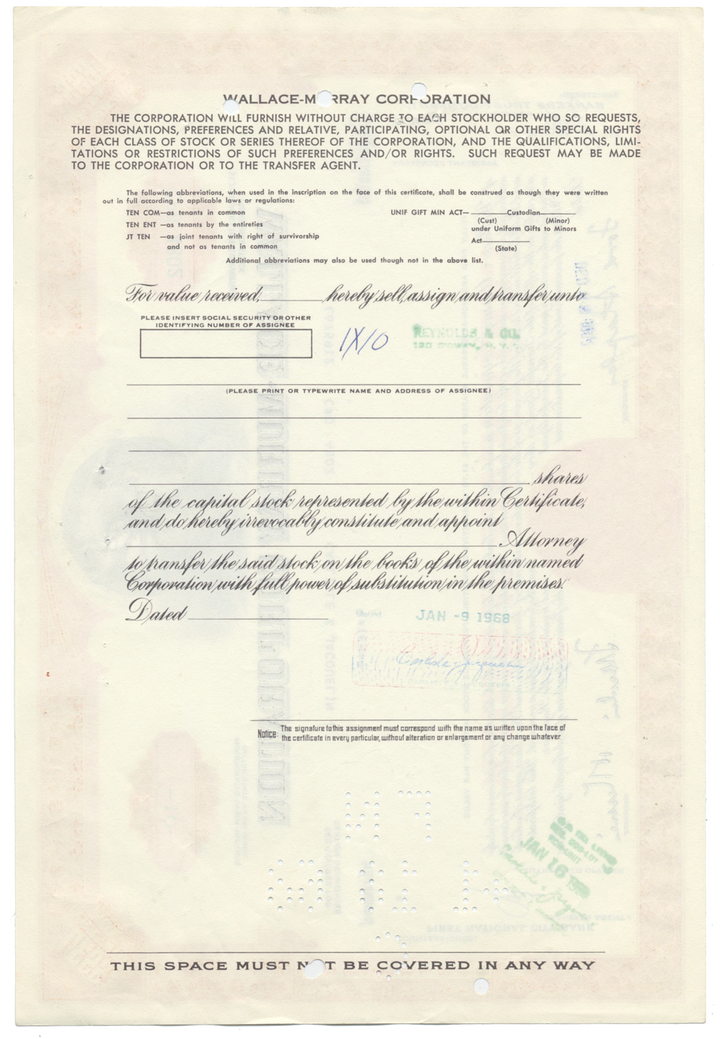 WALLACE-MURRAY CORPORATION
THE CORPORATION WILL FURNISH WITHOUT CHARGE TO EACH STOCKHOLDER WHO SO REQUESTS,
THE DESIGNATIONS, PREFERENCES AND RELATIVE, PARTICIPATING, OPTIONAL OR OTHER SPECIAL RIGHTS
OF EACH CLASS OF STOCK OR SERIES THEREOF OF THE CORPORATION, AND THE QUALIFICATIONS, LIMI-
TATIONS OR RESTRICTIONS OF SUCH PREFERENCES AND/OR RIGHTS. SUCH REQUEST MAY BE MADE
TO THE CORPORATION OR TO THE TRANSFER AGENT.
The following abbreviations, when used in the inscription on the face of this certificate, shall be construed as though they were written
out in full according to applicable laws or regulations:
TEN COM—as tenants in common
UNIF GIFT MIN ACT— Custodian
(Cust) (Minor)
TEN ENT —as tenants by the entireties
under Uniform Gifts to Minors
JT TEN —as joint tenants with right of survivorship
and not as tenants in common
Act
(State)
Additional abbreviations may also be used though not in the above list.
For value received, hereby sell, assign and transfer unto
PLEASE INSERT SOCIAL SECURITY OR OTHER
IDENTIFYING NUMBER OF ASSIGNEE
REYNOLDS & CO.
(PLEASE PRINT OR TYPEWRITE NAME AND ADDRESS OF ASSIGNEE)
shares
of the capital stock represented by the within Certificate,
and do hereby irrevocably constitute and appoint
Attorney
to transfer the said stock on the books of the within named
Corporation with full power of substitution in the premises.
Dated
JAN -9 1968
Notice: The signature to this assignment must correspond with the name as written upon the face of
the certificate in every particular, without alteration or enlargement or any change whatever
JAN 16
THIS SPACE MUST NOT BE COVERED IN ANY WAY